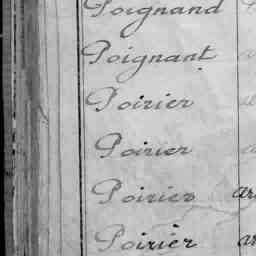 Poignand
Poignant
Poirier
Poirier
Poirier ar
Poirier ar